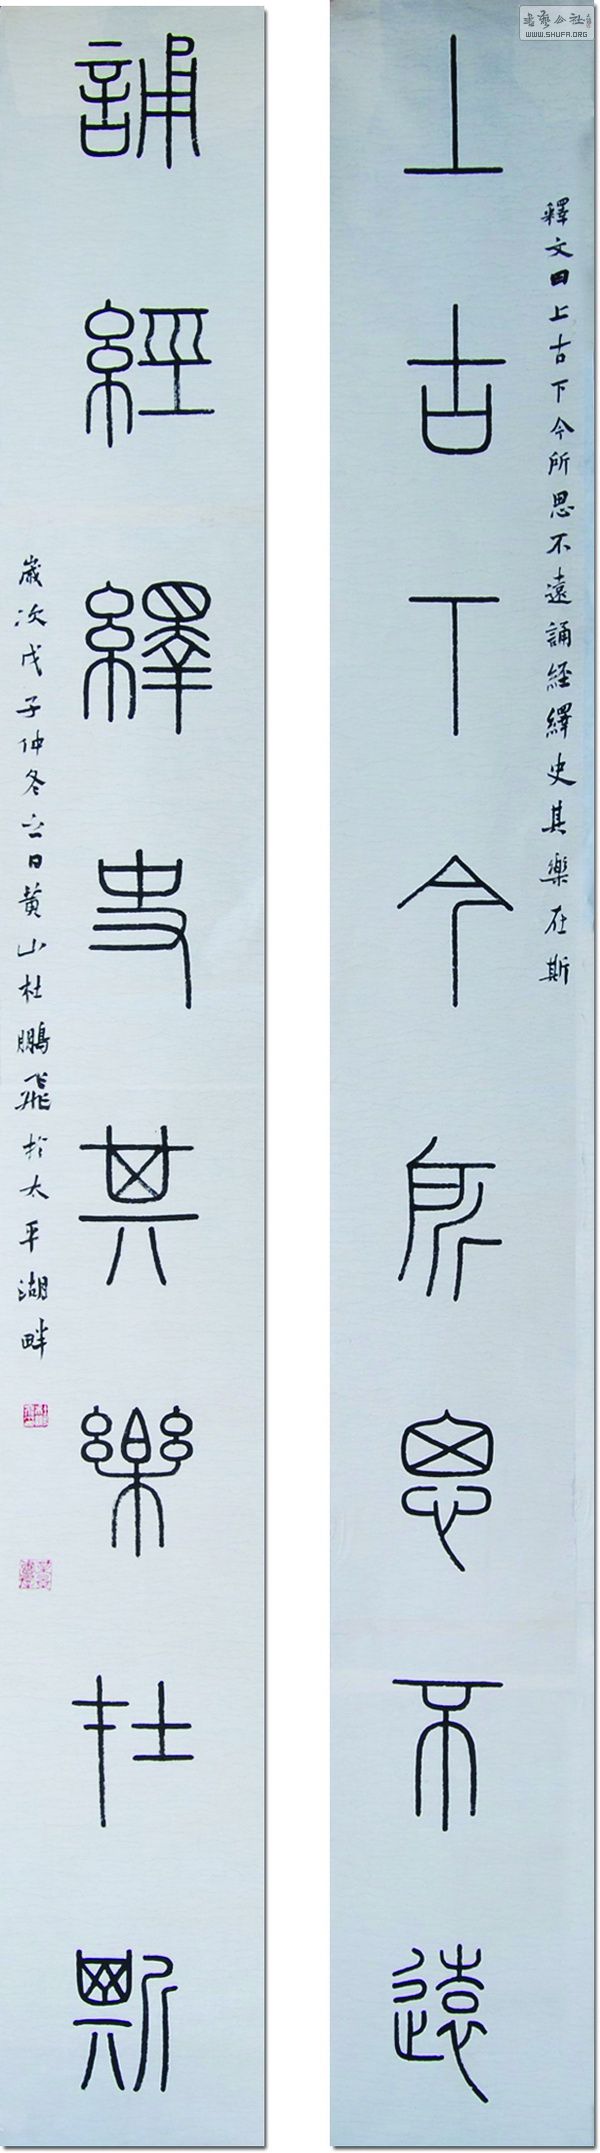 上古下今所思不遠
釋文曰上古下今所思不遠誦經繹史其樂在斯
誦經繹史其樂在斯
歲次戊子仲冬立日黄山杜鵬飛於太平湖畔
WWW.SHUFA.ORG